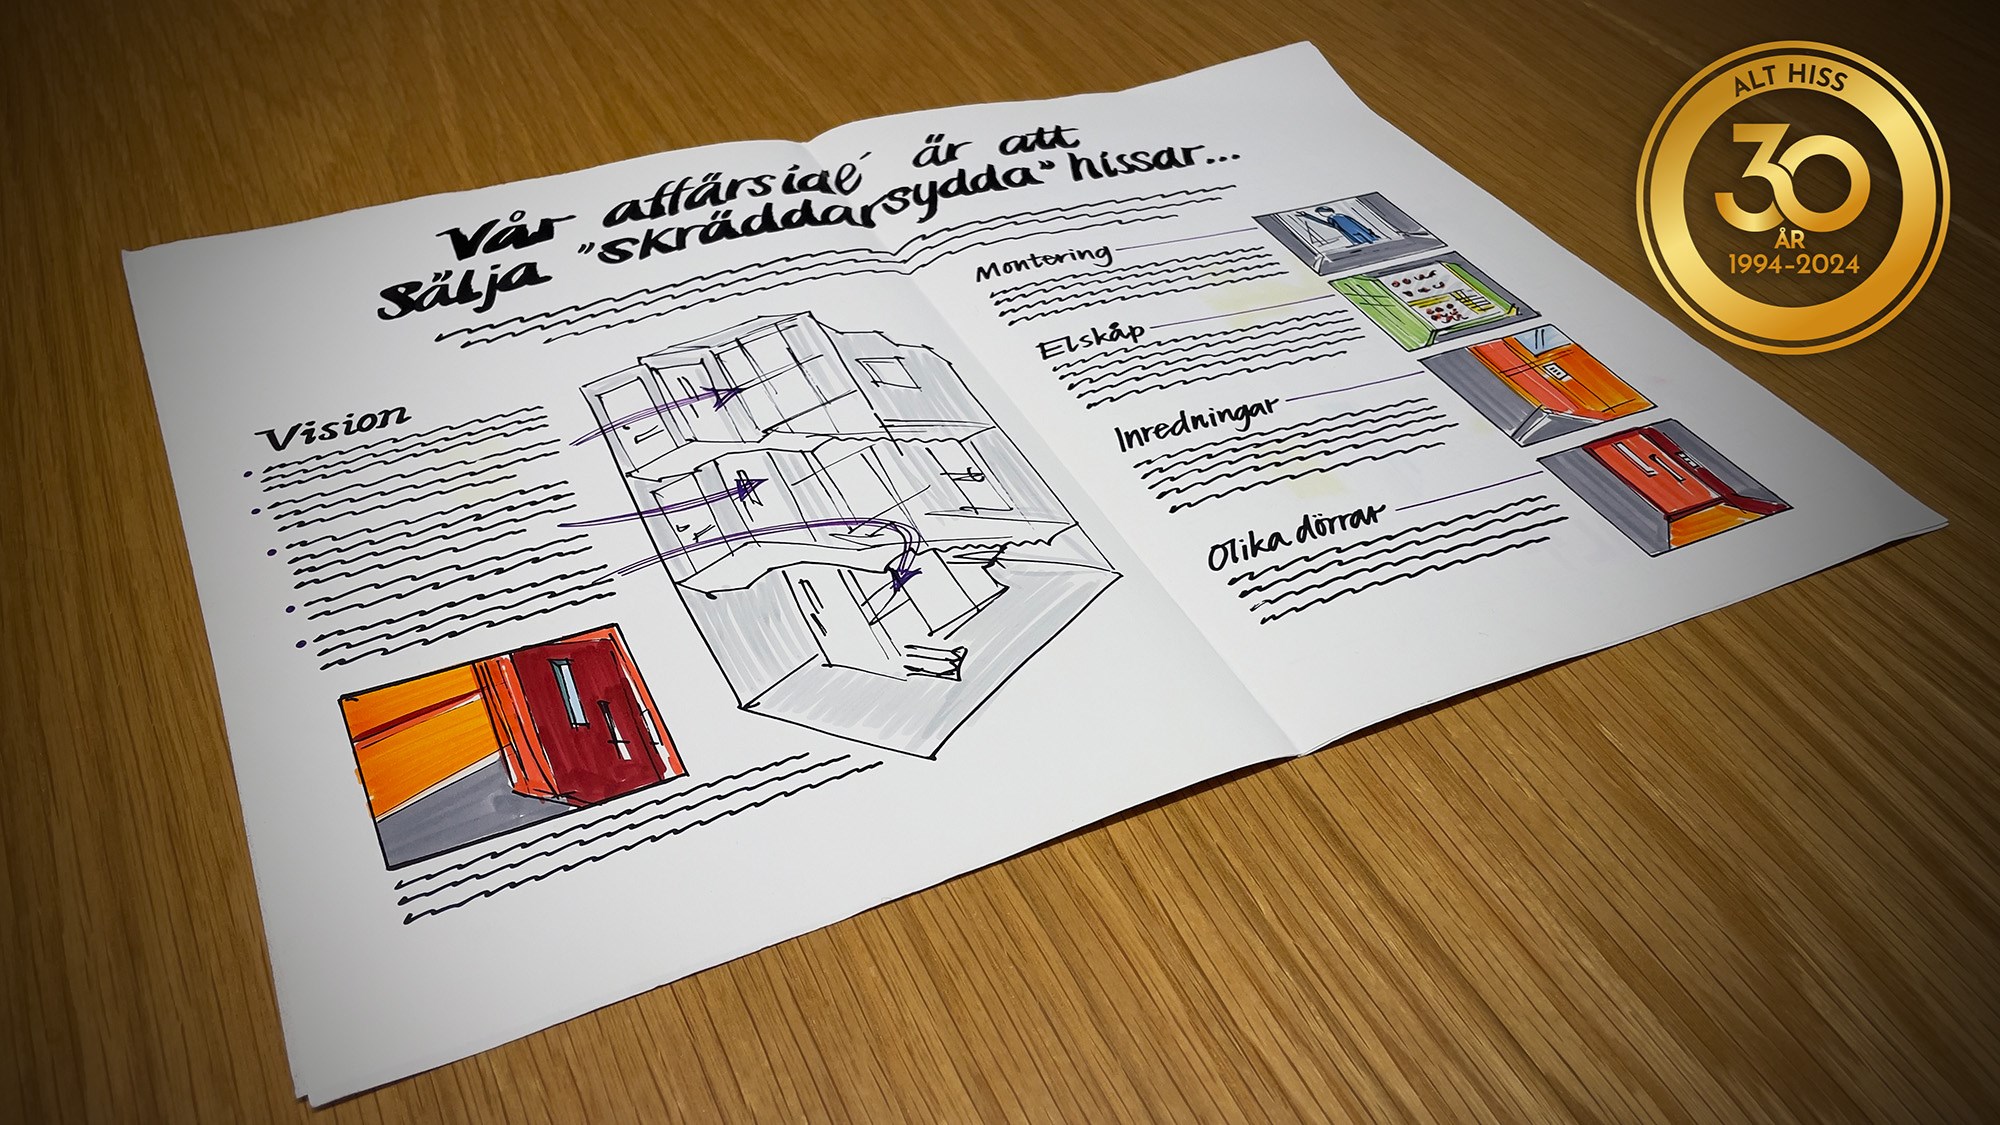 Vår affärsidé är att
Sälja "skräddarsydda" hissar...
Vision
Montering
Elskåp
Inredningar
Olika dörrar
ALT HISS
30
ÅR
1994-2024